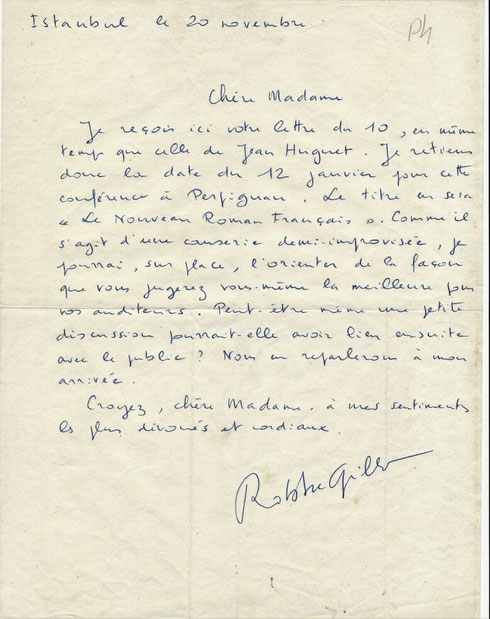 Istanbul le 20 novembre.
P4
Chère Madame
Je reçois ici votre lettre du 10, en même
temps que celle de Jean Huguet. Je retiens
donc la date du 12 janvier pour cette
conférence à Perpignan. Le titre en sera
« Le Nouveau Roman Français ». Comme il
s'agit d'une causerie demi-improvisée, je
pourrai, sur place, l'orienter de la façon
que vous jugerez vous-même la meilleure pour
vos auditeurs. Peut-être même une petite
discussion pourrait-elle avoir lieu ensuite
avec le public ? Nous en reparlerons à mon
arrivée.
Croyez, chère Madame, à mes sentiments
les plus dévoués et cordiaux.
Robbe-Grillet